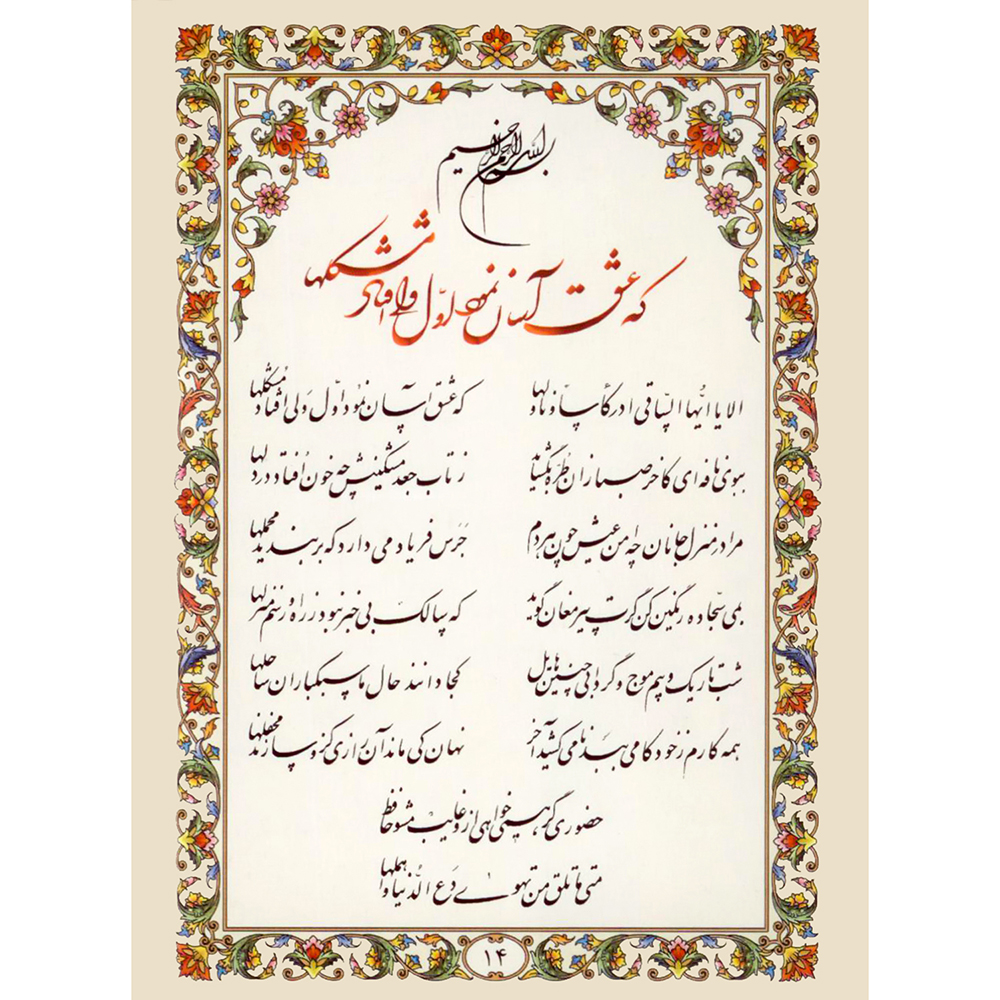 بسم الله الرحمن الرحیم
که عشق آسان نمود اول ولی افتاد مشکلها
الا یا ایُّها السّاقی ادر کأساً و ناولها که عشق آسان نمود اوّل ولی افتاد مُشکلها
ببوی نافه‌ای کاخر صبا زان طُرّه بگشاید ز تاب جعد مشکینش چه خون اُفتاد در دلها
مرا در منزل جانان چه امن عیش چون هر دم جَرَس فریاد می دارد که بر بندید محملها
بمی سجّاده رنگین کن گرت پیر مغان گوید که سالک بی خبر نبود ز راه و رسم منزلها
شب تاریک و بیم موج و گردابی چنین هایل کجا دانند حال ما سبکباران ساحلها
همه کارم ز خود کامی به بدنامی کشید آخر نهان کی ماند آن رازی کزو سازند محفلها
حضوری گر همی خواهی ازو غایب مشو حافظ
متی ما تلق من تهوی دَعِ الدُّنیا و اهملها
۱۴